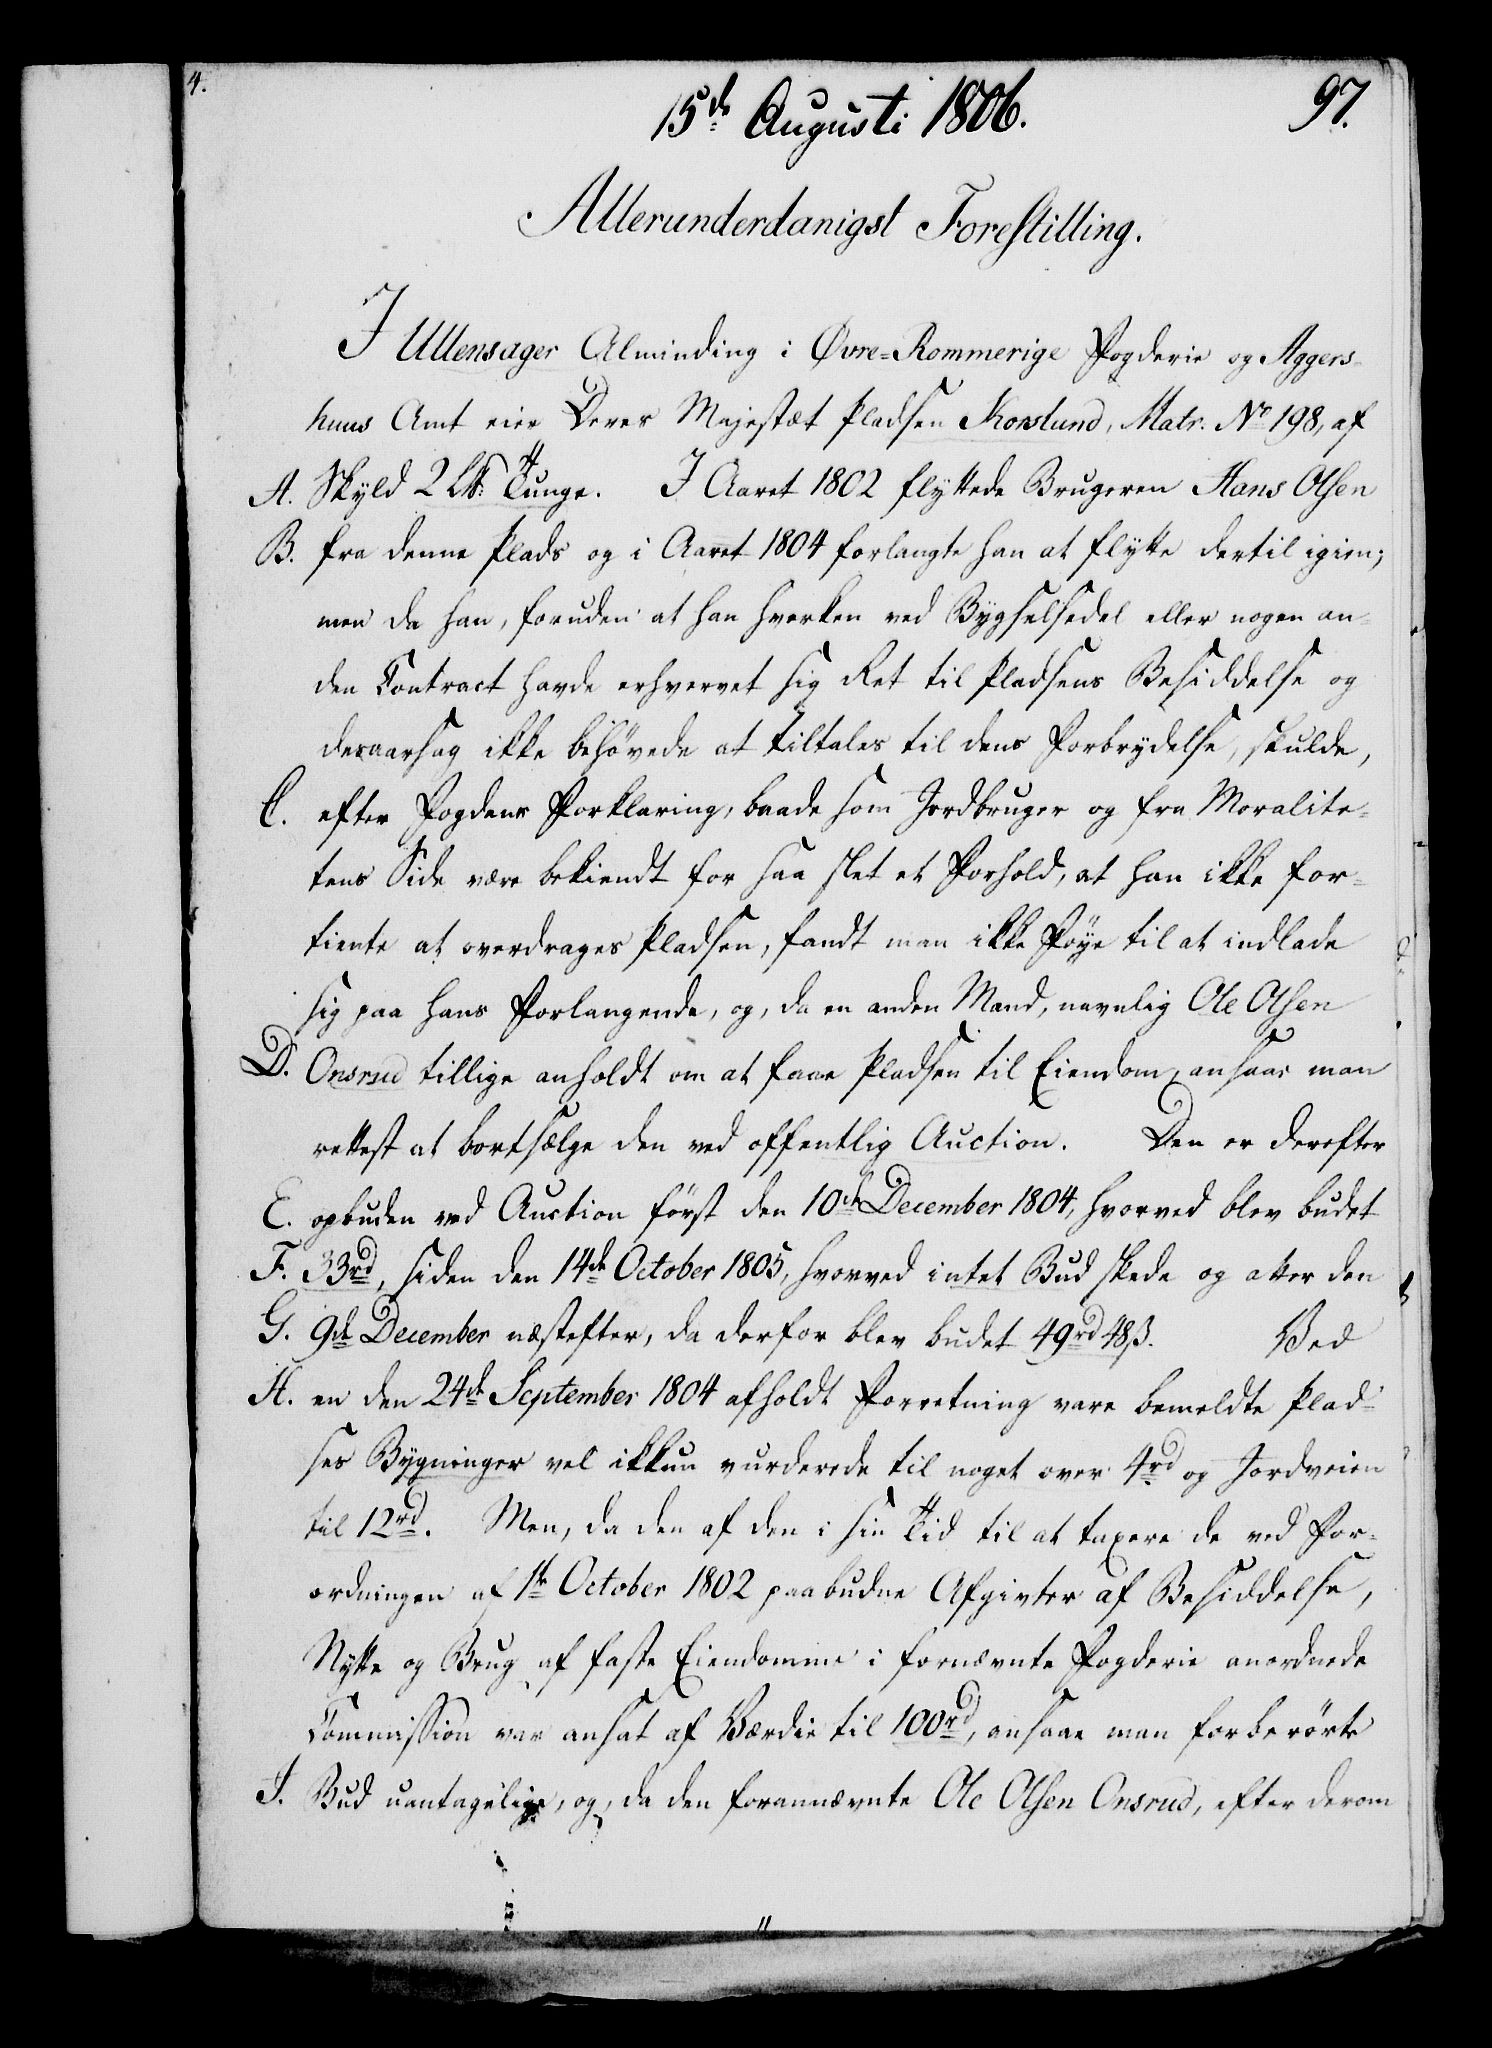 4.
15de Augusti 1806.
97.
Allerunderdanigst Forestilling.
I Ullensager Alminding i Øvre=Rommerige Fogderie og Aggers-
huus Amt eier Deres Majestæt Pladsen Korslund, Matr. No 198, af
A. Skyld 2 Lb. Tunge. I Aaret 1802 flyttede Brugeren Hans Olsen
B. fra denne Plads og i Aaret 1804 forlangte han at flytte dertil igien;
men da han, foruden at han hverken ved Bygselsedel eller nogen an-
den Contract havde erhvervet sig Ret til Pladsens Besiddelse og
desaarsag ikke behövede at tiltales til dens Forbrydelse, skulde,
C. efter Fogdens Forklaring, baade som Jordbruger og fra Moralite-
tens Side være bekiendt for saa slet et Forhold, at han ikke for-
tiente at overdrages Pladsen, fandt man ikke Föye til at indlade
sig paa hans Forlangende, og, da en anden Mand, navnlig Ole Olsen
D. Onsrud tillige anholdt om at faae Pladsen til Eiendom, ansaae man
rettest at bortsælge den ved offentlig Auction. Den er derefter
E. opbuden ved Auction först den 10de December 1804, hvorved blev budet
F. 33rd, siden den 14de October 1805, hvorved intet Bud skede og atter den
G. 9de December næstefter, da derfor blev budet 49rd 48ß. Ved
H. en den 24de September 1804 afholdt Forretning vare bemeldte Plad-
ses Bygninger vel ikkun vurderede til noget over 4rd og Jordveien
til 12rd. Men, da den af den i sin Tid til at taxere de ved For-
ordningen af 1ste October 1802 paabudne Afgivter af Besiddelse,
Nytte og Brug af faste Eiendomme i fornævnte Fogderie anordnede
Commission var ansat af Værdie til 100rd, ansaae man forberörte
I. Bud uantagelige, og, da den forannævnte Ole Olsen Onsrud, efter derom